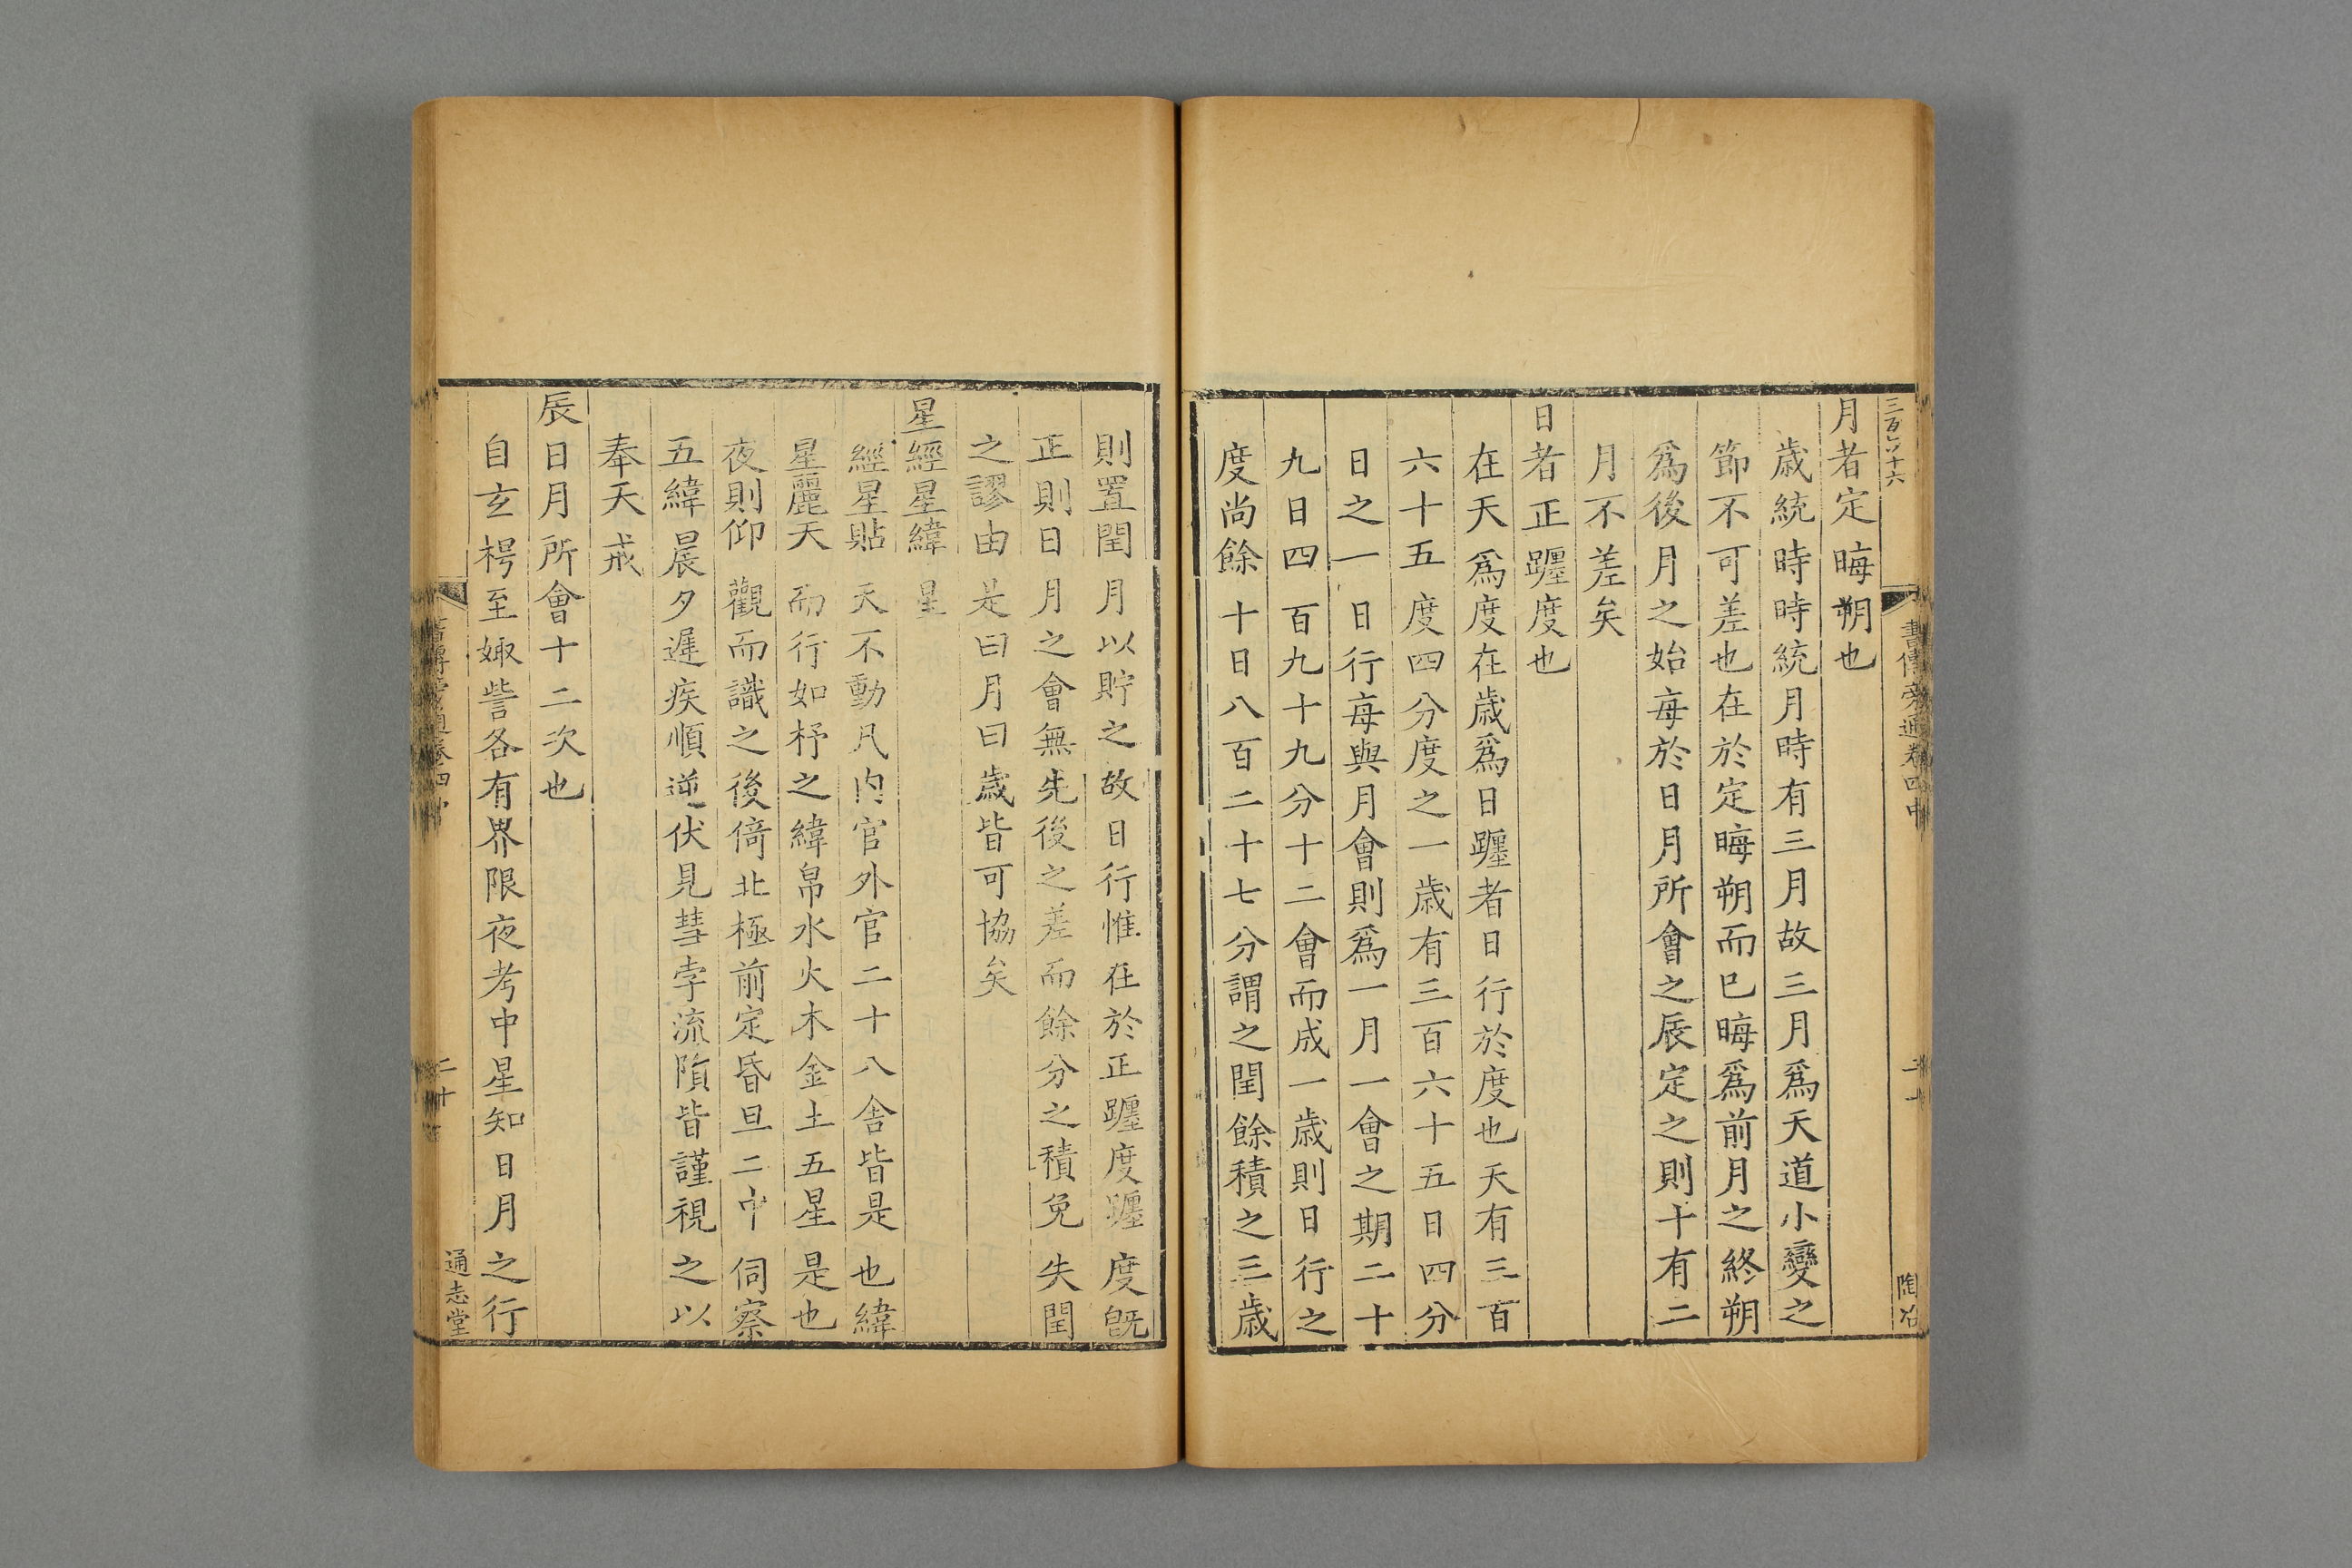 三百六十六
書傳旁通卷四中
陶冶
月者定晦朔也
歲統時時統月時有三月故三月爲天道小變之
節不可差也在於定晦朔而已晦爲前月之終朔
爲後月之始每於日月所會之辰定之則十有二
月不差矣
日者正躔度也
在天爲度在歲爲日躔者日行於度也天有三百
六十五度四分度之一歲有三百六十五日四分
日之一日行每與月會則爲一月一會之期二十
九日四百九十九分十二會而成一歲則日行之
度尚餘十日八百二十七分謂之閏餘積之三歲
則置閏月以貯之故日行惟在於正躔度躔度旣
正則日月之會無先後之差而餘分之積免失閏
之謬由是曰月曰歲皆可協矣
星經星緯星
經星貼天不動凡內官外官二十八舍皆是也緯
星麗天而行如杼之緯帛水火木金土五星是也
夜則仰觀而識之後倚北極前定昏旦二中伺察
五緯晨夕遲疾順逆伏見彗孛流隕皆謹視之以
奉天戒
辰日月所會十二次也
自玄枵至娵訾各有界限夜考中星知日月之行
書傳旁通卷四中
二十
通志堂